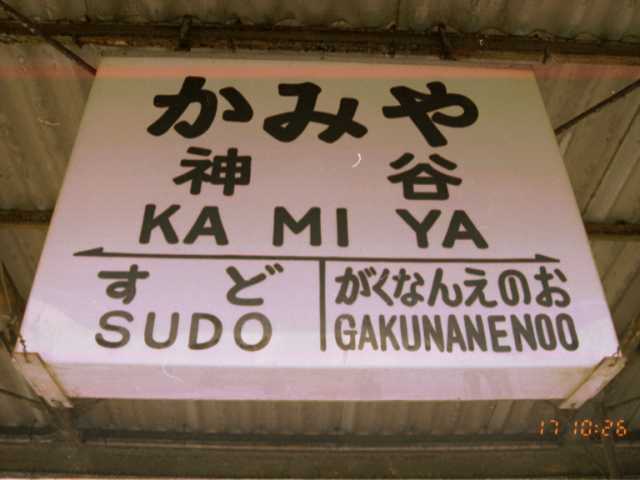 かみや
神谷
KAMIYA
すど がくなんえのお
SUDO GAKUNANENOO
17 10:26